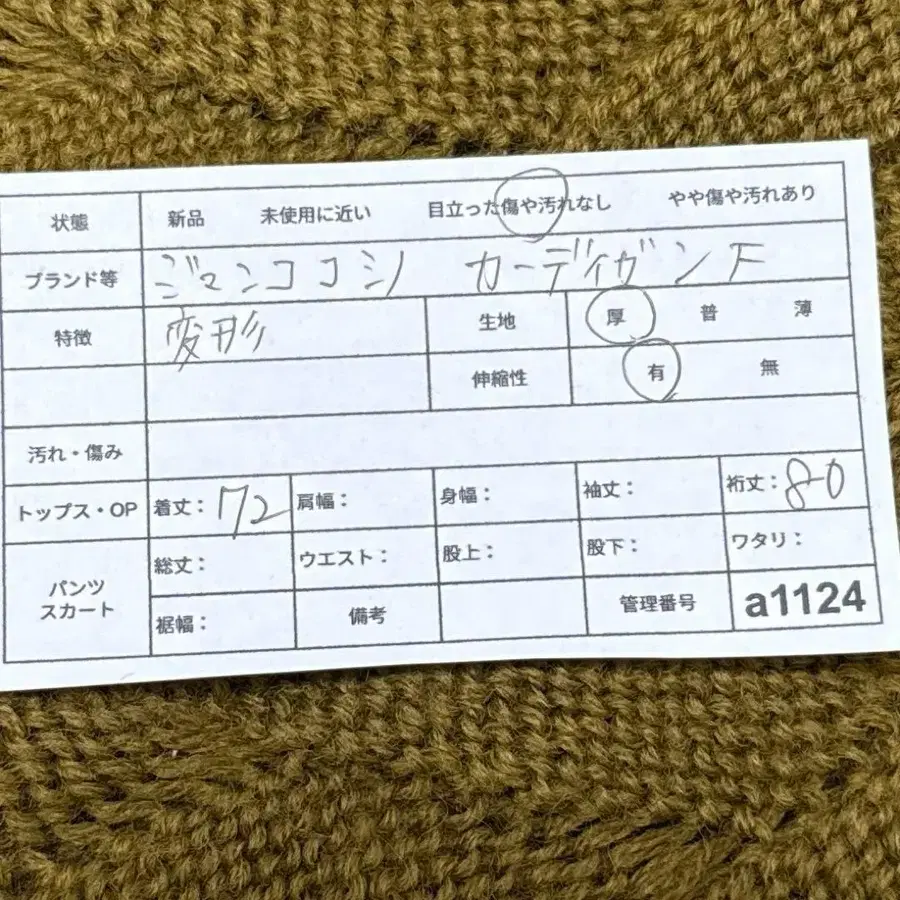 状態 新品 未使用に近い 目立った傷や汚れなし やや傷や汚れあり
ブランド等 ジマンココシノ カーディガン F
特徴 変形 生地 厚 普 薄
伸縮性 有 無
汚れ・傷み
トップス・OP 着丈: 72 肩幅: 身幅: 袖丈: 裄丈: 80
パンツ スカート 総丈: ウエスト: 股上: 股下: ワタリ:
裾幅: 備考 管理番号 a1124